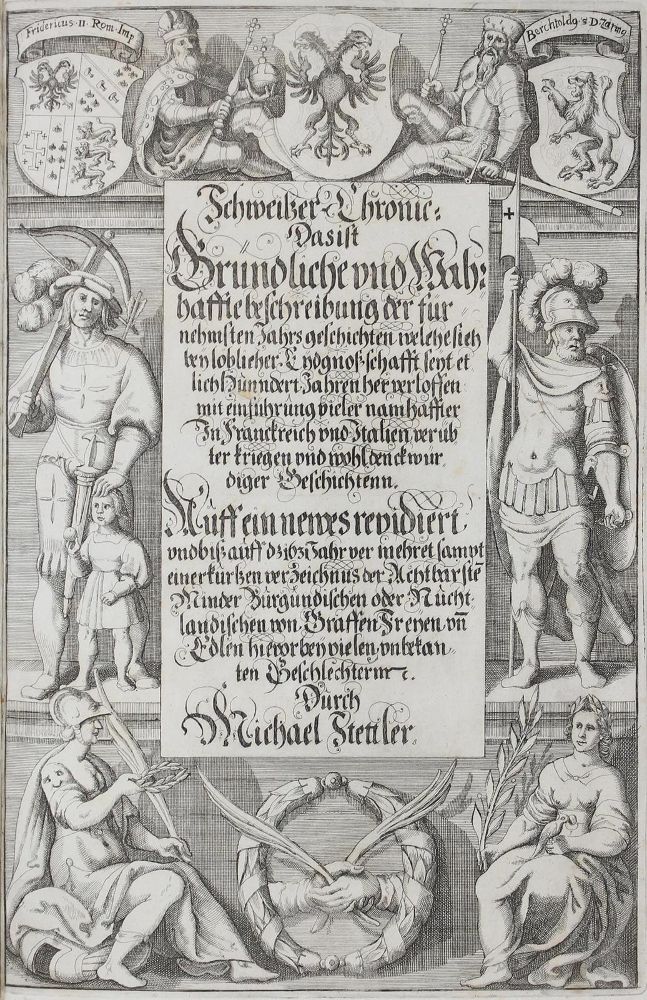 Fridericus · II · Rom · Imp
Berchtoldg · 5 D · Zaring
Schweitzer-Chronic:
Das ist
Grundliche vnd Wah:
haffte beschreibung der für
nehmsten Jahrs geschichten welche sich
bey loblicher Eydgnoßschafft seyt et
lich Hünndert Jahren her verloffen
mit einführung vieler namhaffter
In Franckreich vnd Italien verüb
ter kriegen vnd wohldenckwur
diger Geschichtenn.
Auff ein newes revidiert,
vnd biß auff dz 1631 Jahr vermehret sampt
einer kurtzen verzeichnus der Achtbarstē
Minder Burgundischen oder Nücht
landischen von Graffen Freyen vn̄
Edlen hievor bey vielen vnbekan
ten Geschlechtern
Durch
Michael Stettler